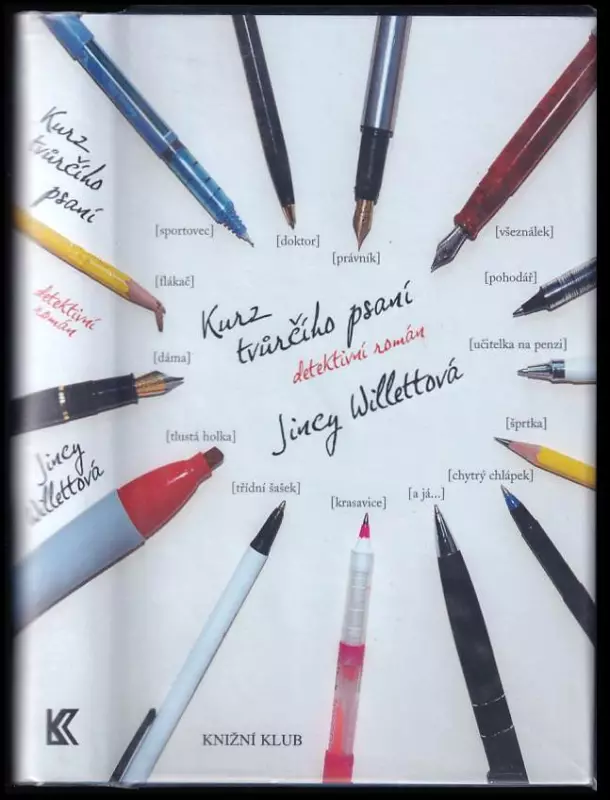 Kurz
tvůrčího
psaní
detektivní
román
Jincy
Willettová
[sportovec]
[doktor]
[právník]
[všeználek]
[flákač]
[pohodář]
[dáma]
[učitelka na penzi]
[tlustá holka]
[šprtka]
[třídní šašek]
[krasavice]
[a já...]
[chytrý chlápek]
Kurz
tvůrčího psaní
detektivní román
Jincy Willettová
KNIŽNÍ KLUB